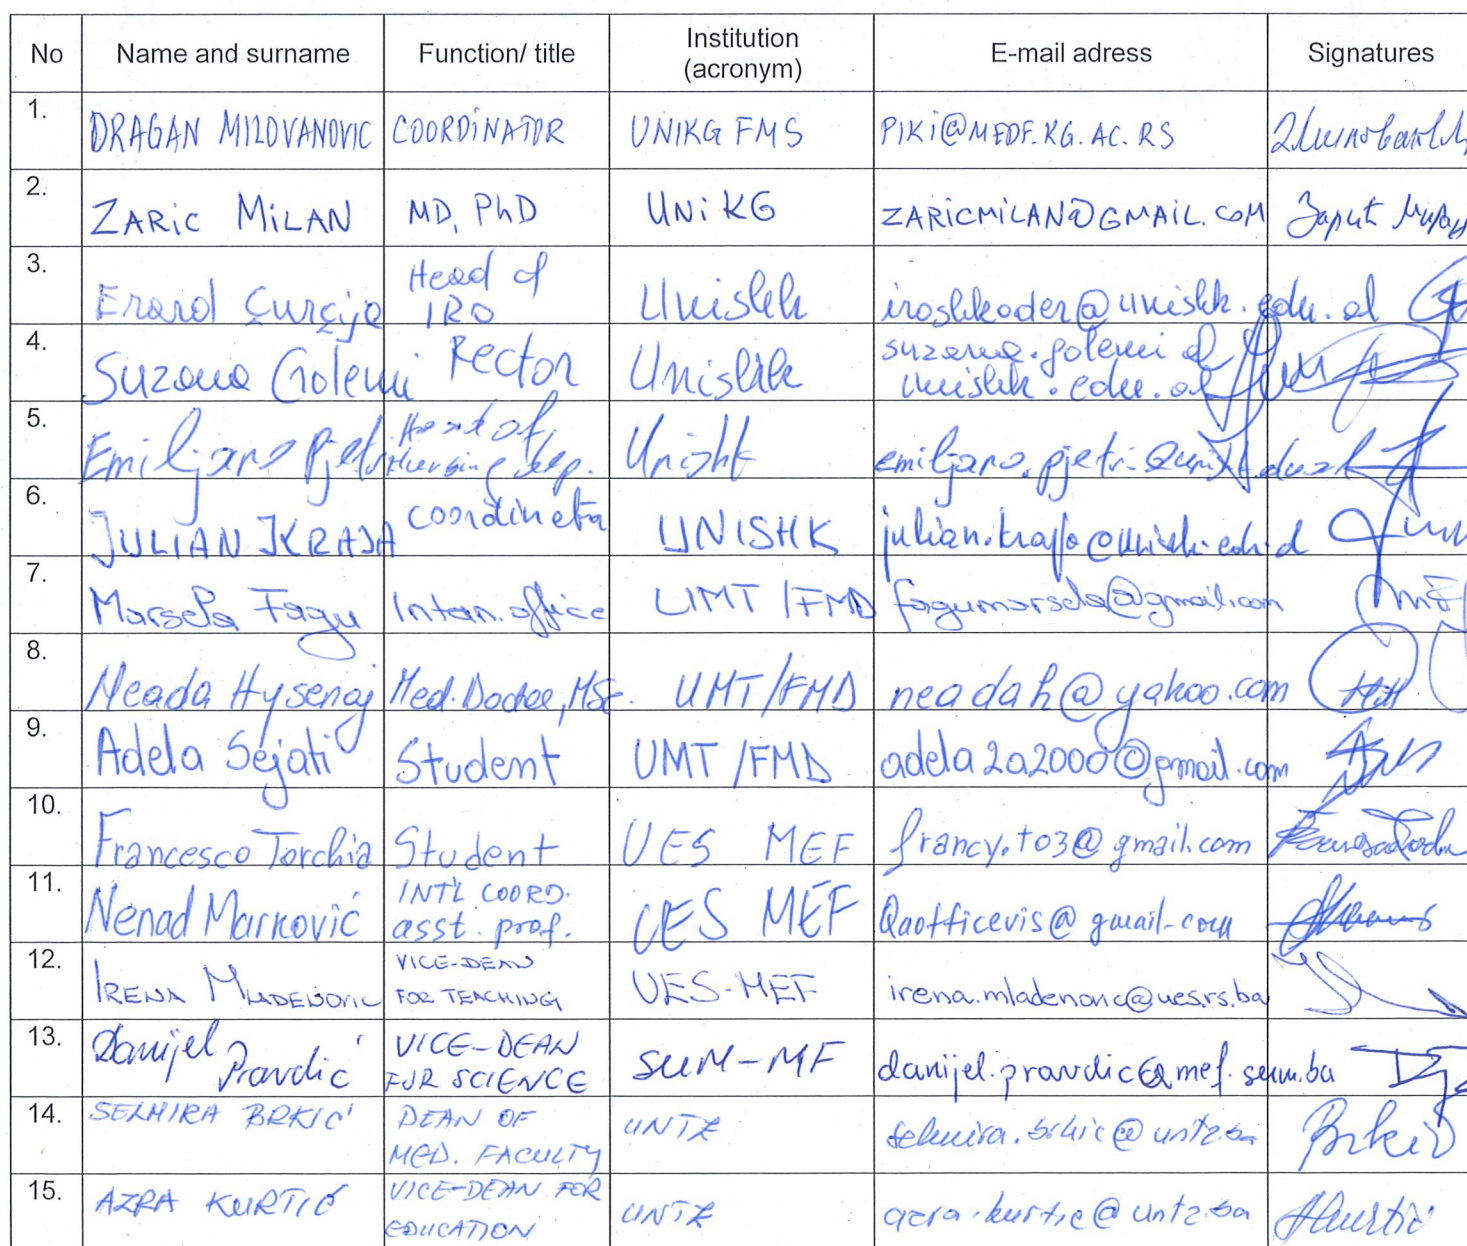 No Name and surname Function/ title Institution (acronym) E-mail adress Signatures
1. DRAGAN MILOVANOVIC COORDINATOR UNIKG FMS PIKI@MEDF.KG.AC.RS
2. ZARIC MILAN MD, PhD UNiKG ZARICMILAN@GMAIL.COM Зарић Милан
3. Erard Çurçija Head of IRO Unishk iroshkoder@unishk.edu.al
4. Suzana Golemi Rector Unishk suzana.golemi @ unishk.edu.al
5. Emiljano Pjetri Head of Nursing Dep. Unishk
6. JULIAN KRAJA coordinator UNISHK
7. Marsela Fagu Intern. office UMT/FMD fagumarsela@gmail.com
8. Neada Hysenaj Med. Doctor, MSc. UMT/FMD neadah@yahoo.com
9. Adela Sejati Student UMT/FMD adela2a2000@gmail.com
10. Francesco Torchia Student UES MEF francy.to3@gmail.com
11. Nenad Marković INT'L COORD. asst. prof. UES MEF Qaofficevis@gmail.com
12. IRENA MLADENOVIC VICE-DEAN FOR TEACHING UES-MEF irena.mladenovic@ues.rs.ba
13. Danijel Pravdić VICE-DEAN FOR SCIENCE SUM-MF danijel.pravdic@mef.sum.ba
14. SELMIRA BRKIĆ DEAN OF MED. FACULTY UNTZ selmira.brkic@untz.ba Brkić
15. AZRA KURTIĆ VICE-DEAN FOR EDUCATION UNTZ azra.kurtic@untz.ba AKurtić